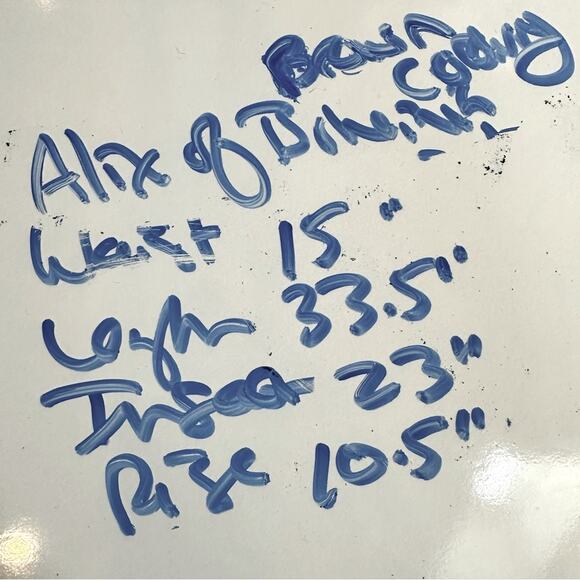 Brown
Alix of Bohemia
Waist 15"
Length 33.5"
Inseam 23"
Rise 10.5"